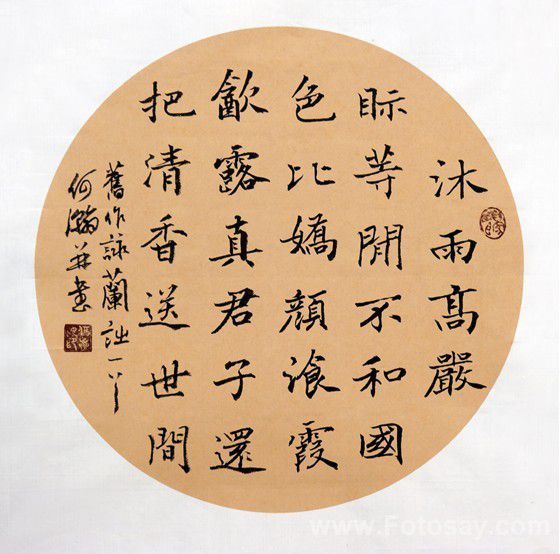 沐雨髙嚴
眎等閒不和國
色比嬌顏湌霞
㱃露真君子還
把清香送世間
舊作詠蘭一
何瀚并書
www.Fotosay.com